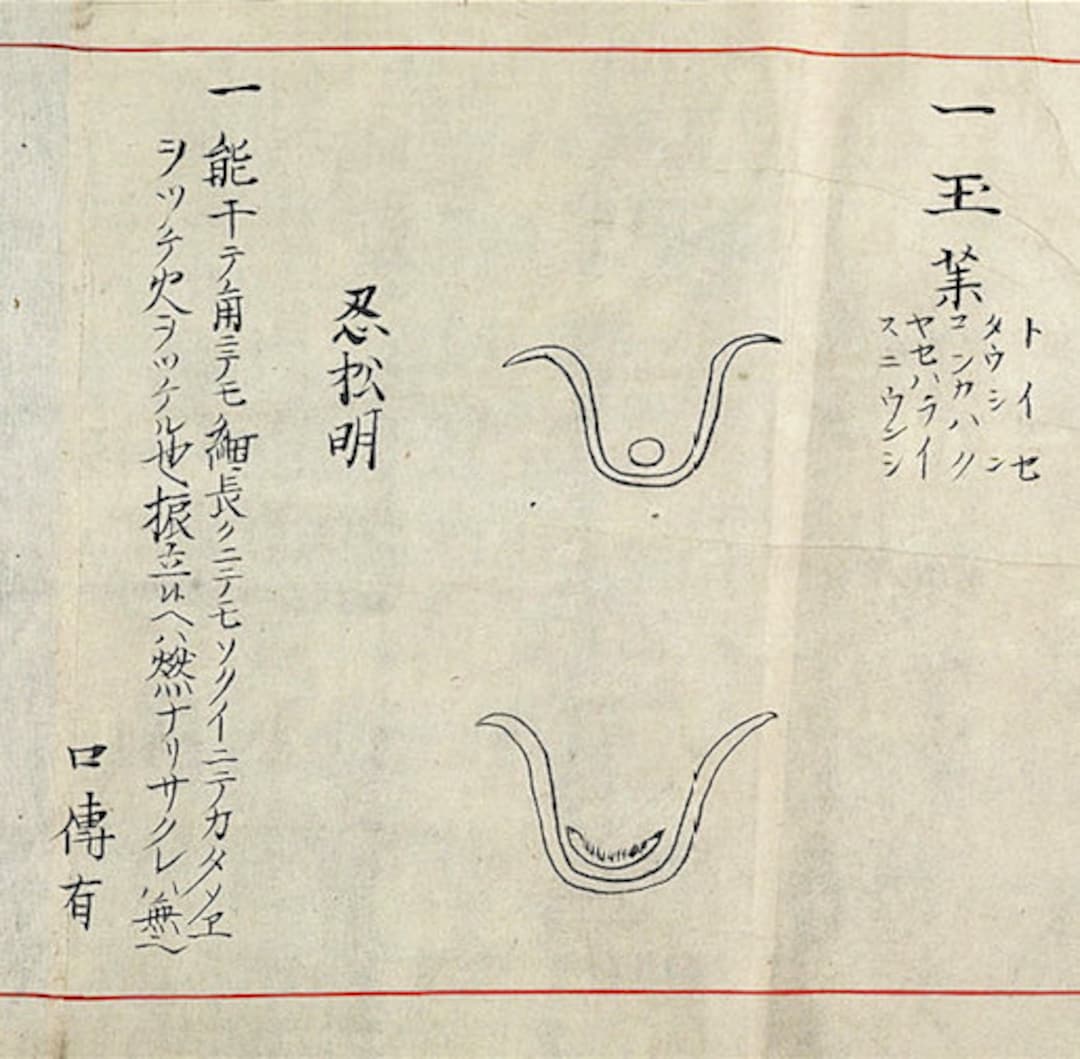 一玉業
トイセ
タウシン
コンカハク
ヤセハライ
スニウンシ
忍松明
一能干テ角ニテモ細長クニテモソクイニテカタツ
ヲツケテ火ヲツケル也振立レハ燃ナリサクレハ無
口傳有